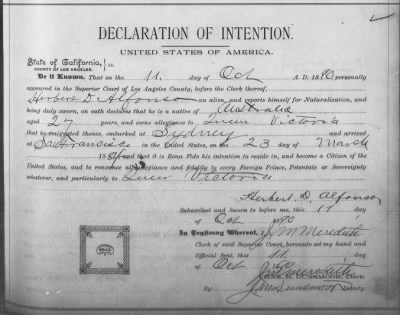 DECLARATION OF INTENTION.
UNITED STATES OF AMERICA.
State of California, } ss.
COUNTY OF LOS ANGELES.
Be it Known, That on the 11 day of Oct A. D. 1890 personally
appeared in the Superior Court of Los Angeles County, before the Clerk thereof,
Herbert D. Alfonso an alien, and reports himself for Naturalization, and
being duly sworn, on oath declares that he is a native of Australia
aged 27 years, and owes allegiance to Queen Victoria
that he emigrated thence, embarked at Sydney and arrived
at San Francisco in the United States, on the 23 day of March
and that it is Bona Fide his intention to reside in, and become a Citizen of the
United States, and to renounce all allegiance and fidelity to every Foreign Prince, Potentate or Sovereignty
whatever, and particularly to Queen Victoria
Herbert D. Alfonso
Subscribed and Sworn to before me, this 11 day
of Oct 1890
In Testimony Whereof, I J M Meredith
Clerk of said Superior Court, hereunto set my hand and
Official Seal, this 11 day
of Oct 1890
J M Meredith
DUNSMOOR, Clerk
By Dunsmoor Deputy